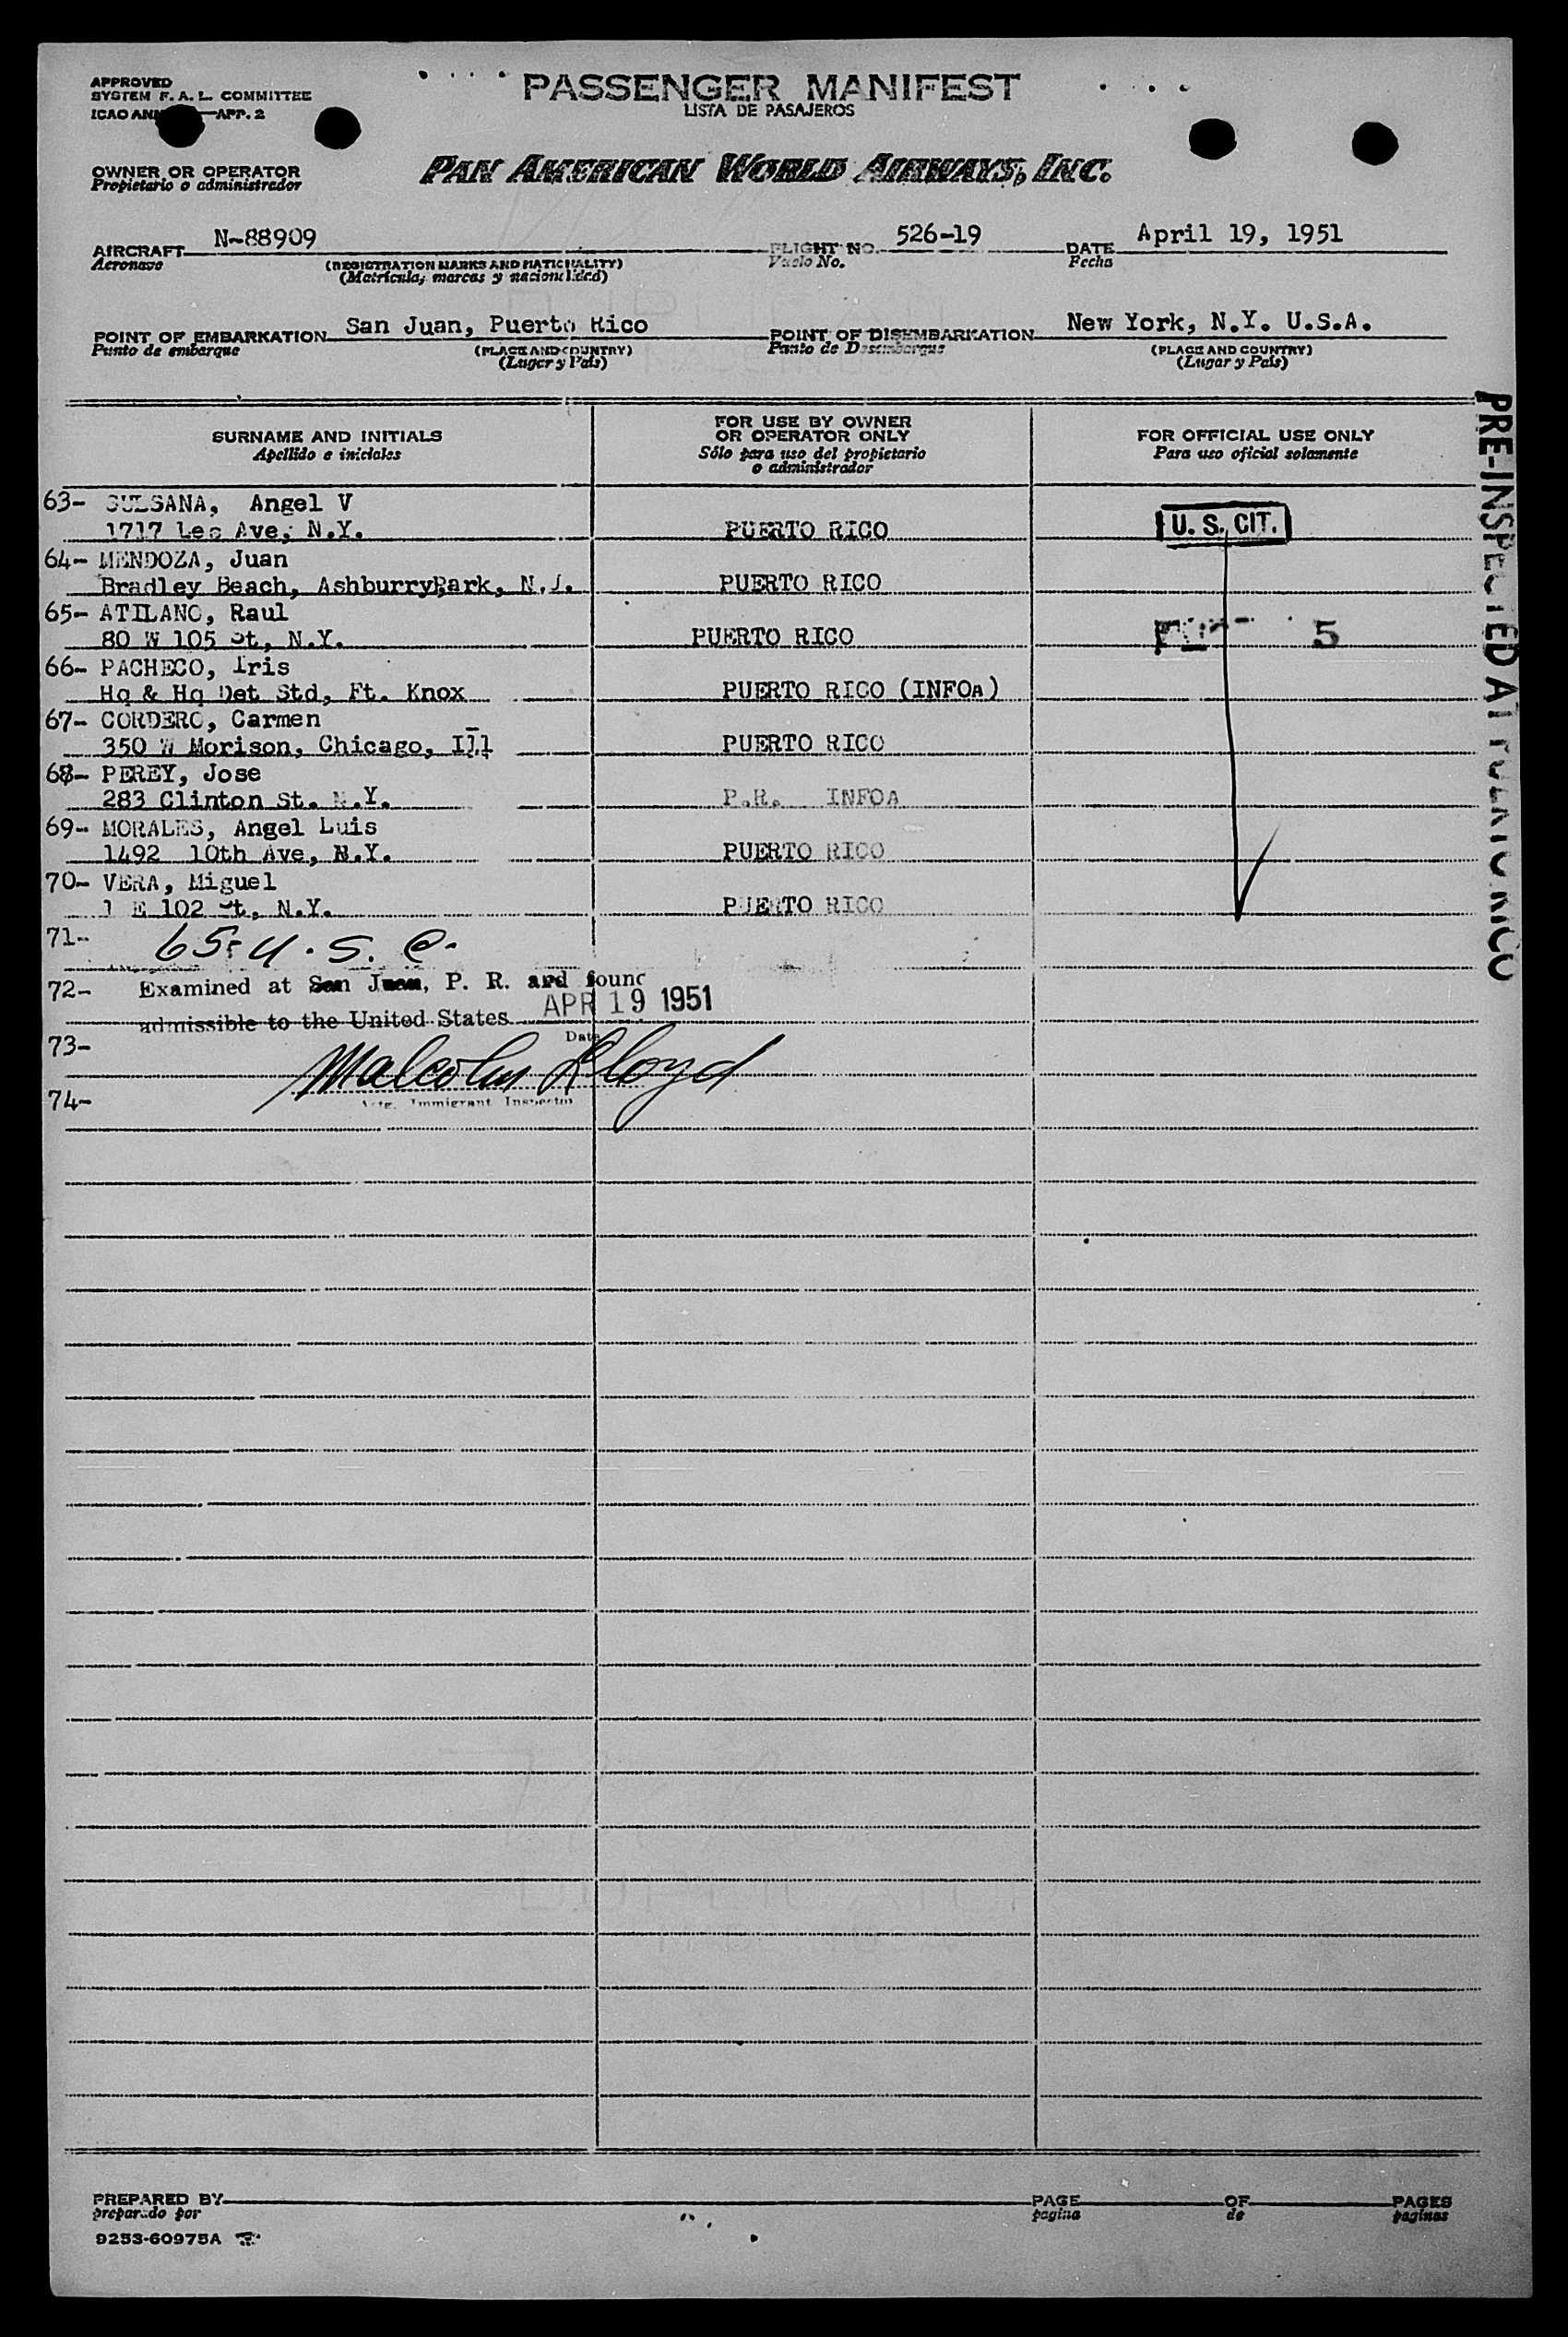 APPROVED
SYSTEM F. A. L. COMMITTEE
ICAO APP. 2
PASSENGER MANIFEST
LISTA DE PASAJEROS
OWNER OR OPERATOR
Propietario o administrador
PAN AMERICAN WORLD AIRWAYS, INC.
AIRCRAFT N-88909 FLIGHT NO. 526-19 DATE April 19, 1951
Aeronave (REGISTRATION MARKS AND NATIONALITY) Vuelo No. Fecha
(Matrícula, marcas y nacionalidad)
POINT OF EMBARKATION San Juan, Puerto Rico POINT OF DISEMBARKATION New York, N.Y. U.S.A.
Punto de embarque (PLACE AND COUNTRY) Punto de Desembarque (PLACE AND COUNTRY)
(Lugar y País) (Lugar y País)
SURNAME AND INITIALS FOR USE BY OWNER OR OPERATOR ONLY FOR OFFICIAL USE ONLY
Apellido e iniciales Sólo para uso del propietario o administrador Para uso oficial solamente
63- Angel V
1717 Ave, N.Y. PUERTO RICO U. S. CIT.
64- MENDOZA, Juan
Bradley Beach, AshburryPark, N.J. PUERTO RICO
65- ATILANO, Raul
80 W 105 St, N.Y. PUERTO RICO 5
66- PACHECO, Iris
Hq & Hq Det Std, Ft. Knox PUERTO RICO (INFOA)
67- CORDERO, Carmen
350 W Morison, Chicago, Ill PUERTO RICO
68- PEREY, Jose
283 Clinton St. N.Y. P.R. INFOA
69- MORALES, Angel Luis
1492 10th Ave, N.Y. PUERTO RICO
70- VERA, Miguel
1 E 102 St, N.Y. PUERTO RICO
71- 65-U.S.C.
72- Examined at San Juan, P. R. and found
admissible to the United States APR 19 1951
73- Date
Malcolm Lloyd
74- Immigrant Inspector
PRE-INSPECTED AT PUERTO RICO
PREPARED BY PAGE OF PAGES
preparado por pagina de paginas
9253-60975A